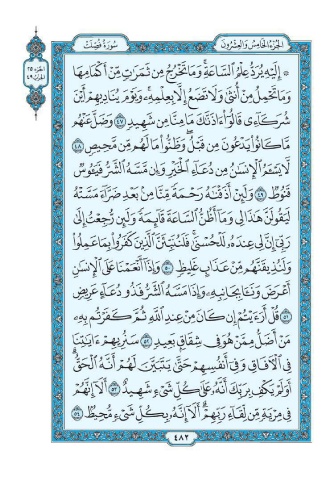 سُورَةُ فُصِّلَتْ
الجُزْءُ الخَامِسُ وَالعِشْرُونَ
الجزء ٢٥
الحزب ٤٩
۞ إِلَيْهِ يُرَدُّ عِلْمُ ٱلسَّاعَةِ ۚ وَمَا تَخْرُجُ مِن ثَمَرَٰتٍ مِّنْ أَكْمَامِهَا
وَمَا تَحْمِلُ مِنْ أُنثَىٰ وَلَا تَضَعُ إِلَّا بِعِلْمِهِۦ ۚ وَيَوْمَ يُنَادِيهِمْ أَيْنَ
شُرَكَآءِى قَالُوٓا۟ ءَاذَنَّٰكَ مَا مِنَّا مِن شَهِيدٍ ٤٧ وَضَلَّ عَنْهُم
مَّا كَانُوا۟ يَدْعُونَ مِن قَبْلُ ۖ وَظَنُّوا۟ مَا لَهُم مِّن مَّحِيصٍ ٤٨
لَّا يَسْـَٔمُ ٱلْإِنسَٰنُ مِن دُعَآءِ ٱلْخَيْرِ وَإِن مَّسَّهُ ٱلشَّرُّ فَيَـُٔوسٌ
قَنُوطٌ ٤٩ وَلَئِنْ أَذَقْنَٰهُ رَحْمَةً مِّنَّا مِنۢ بَعْدِ ضَرَّآءَ مَسَّتْهُ
لَيَقُولَنَّ هَٰذَا لِى وَمَآ أَظُنُّ ٱلسَّاعَةَ قَآئِمَةً وَلَئِن رُّجِعْتُ إِلَىٰ
رَبِّىٓ إِنَّ لِى عِندَهُۥ لَلْحُسْنَىٰ ۚ فَلَنُنَبِّئَنَّ ٱلَّذِينَ كَفَرُوا۟ بِمَا عَمِلُوا۟
وَلَنُذِيقَنَّهُم مِّنْ عَذَابٍ غَلِيظٍ ٥٠ وَإِذَآ أَنْعَمْنَا عَلَى ٱلْإِنسَٰنِ
أَعْرَضَ وَنَـَٔا بِجَانِبِهِۦ وَإِذَا مَسَّهُ ٱلشَّرُّ فَذُو دُعَآءٍ عَرِيضٍ
٥١ قُلْ أَرَءَيْتُمْ إِن كَانَ مِنْ عِندِ ٱللَّهِ ثُمَّ كَفَرْتُم بِهِۦ
مَنْ أَضَلُّ مِمَّنْ هُوَ فِى شِقَاقٍۭ بَعِيدٍ ٥٢ سَنُرِيهِمْ ءَايَٰتِنَا
فِى ٱلْـَٔافَاقِ وَفِىٓ أَنفُسِهِمْ حَتَّىٰ يَتَبَيَّنَ لَهُمْ أَنَّهُ ٱلْحَقُّ ۗ
أَوَلَمْ يَكْفِ بِرَبِّكَ أَنَّهُۥ عَلَىٰ كُلِّ شَىْءٍ شَهِيدٌ ٥٣ أَلَآ إِنَّهُمْ
فِى مِرْيَةٍ مِّن لِّقَآءِ رَبِّهِمْ ۗ أَلَآ إِنَّهُۥ بِكُلِّ شَىْءٍ مُّحِيطٌۢ ٥٤
٤٨٢